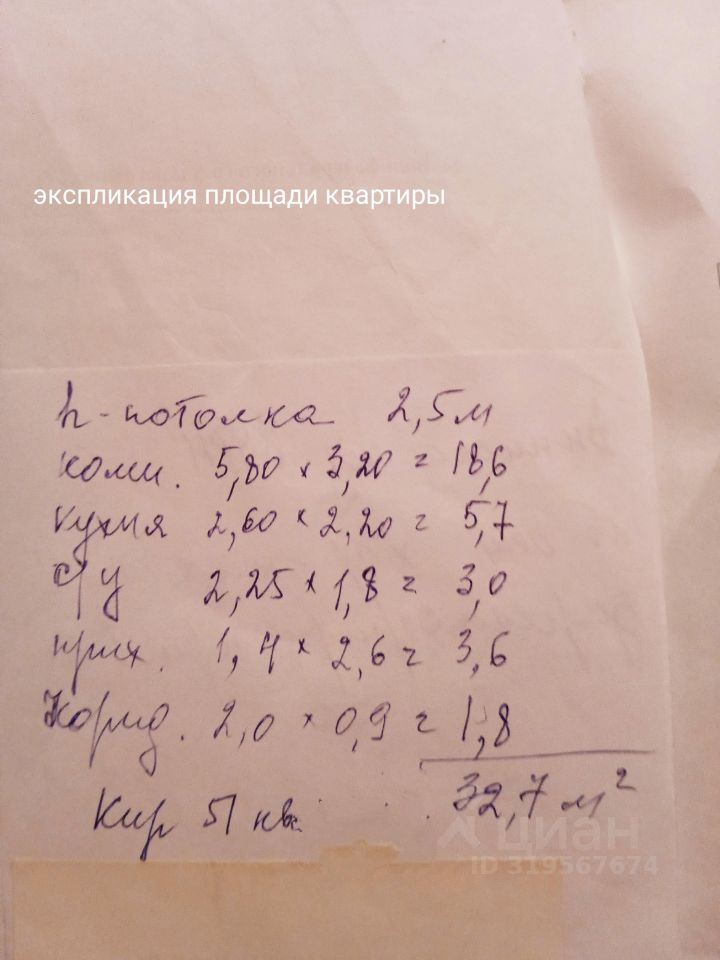 экспликация площади квартиры
h-потолка 2,5 м
комн. 5,80 × 3,20 = 18,6
кухня 2,60 × 2,20 = 5,7
с/у 2,25 × 1,8 = 3,0
прих. 1,4 × 2,6 = 3,6
Корид. 2,0 × 0,9 = 1,8
32,7 м²
Кир 51 кв.
циан
ID 319567674